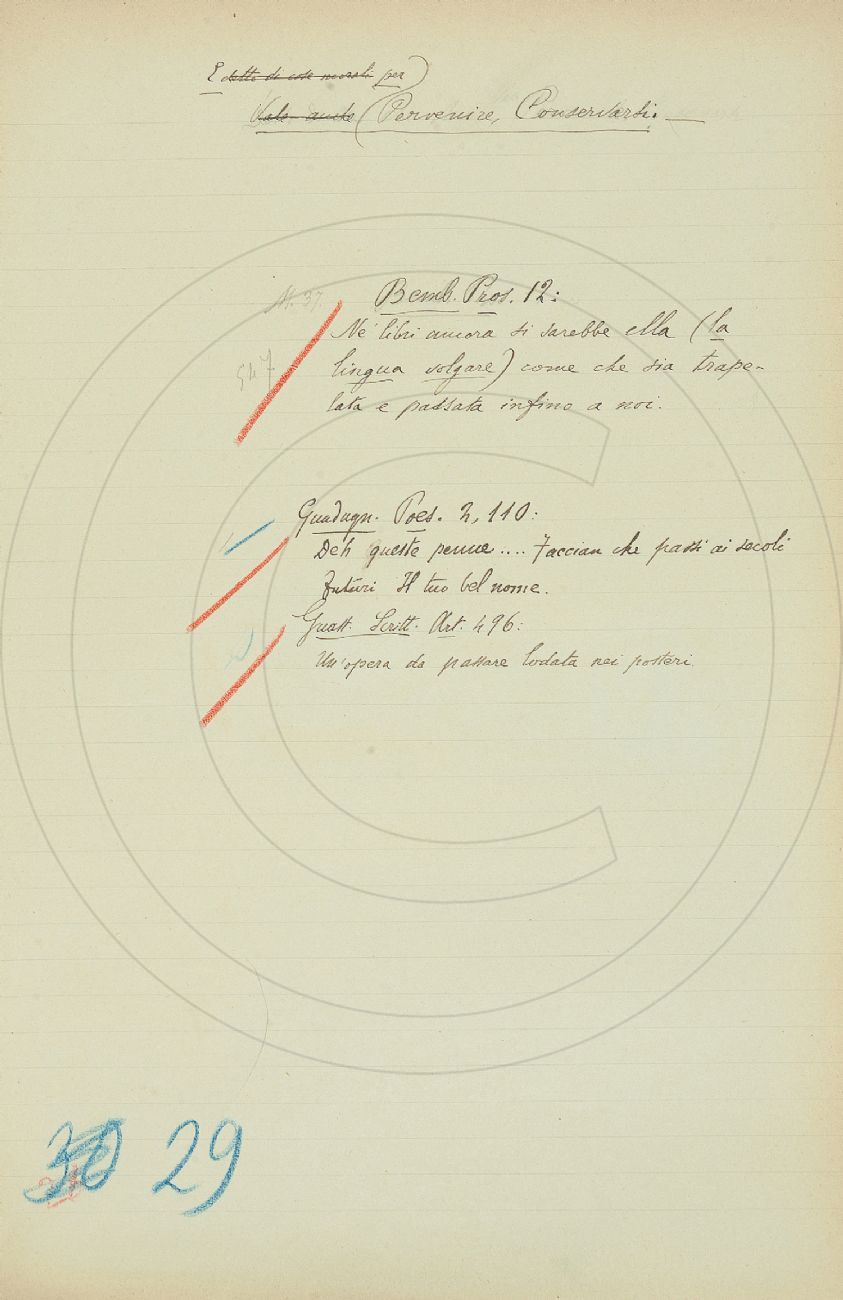 E detto di cose morali per
Vale anche (Pervenire, Conservarsi. —
M. 37.
Bemb. Pros. 12:
Nè libri ancora si sarebbe ella (la
547
lingua volgare) come che sia trape-
lata e passata infino a noi.
Guadagn. Poes. 2, 110:
Deh queste penne .... Faccian che passi ai secoli
futuri Il tuo bel nome.
Guast. Scritt. Art. 496:
Un'opera da passare lodata nei posteri
30 29